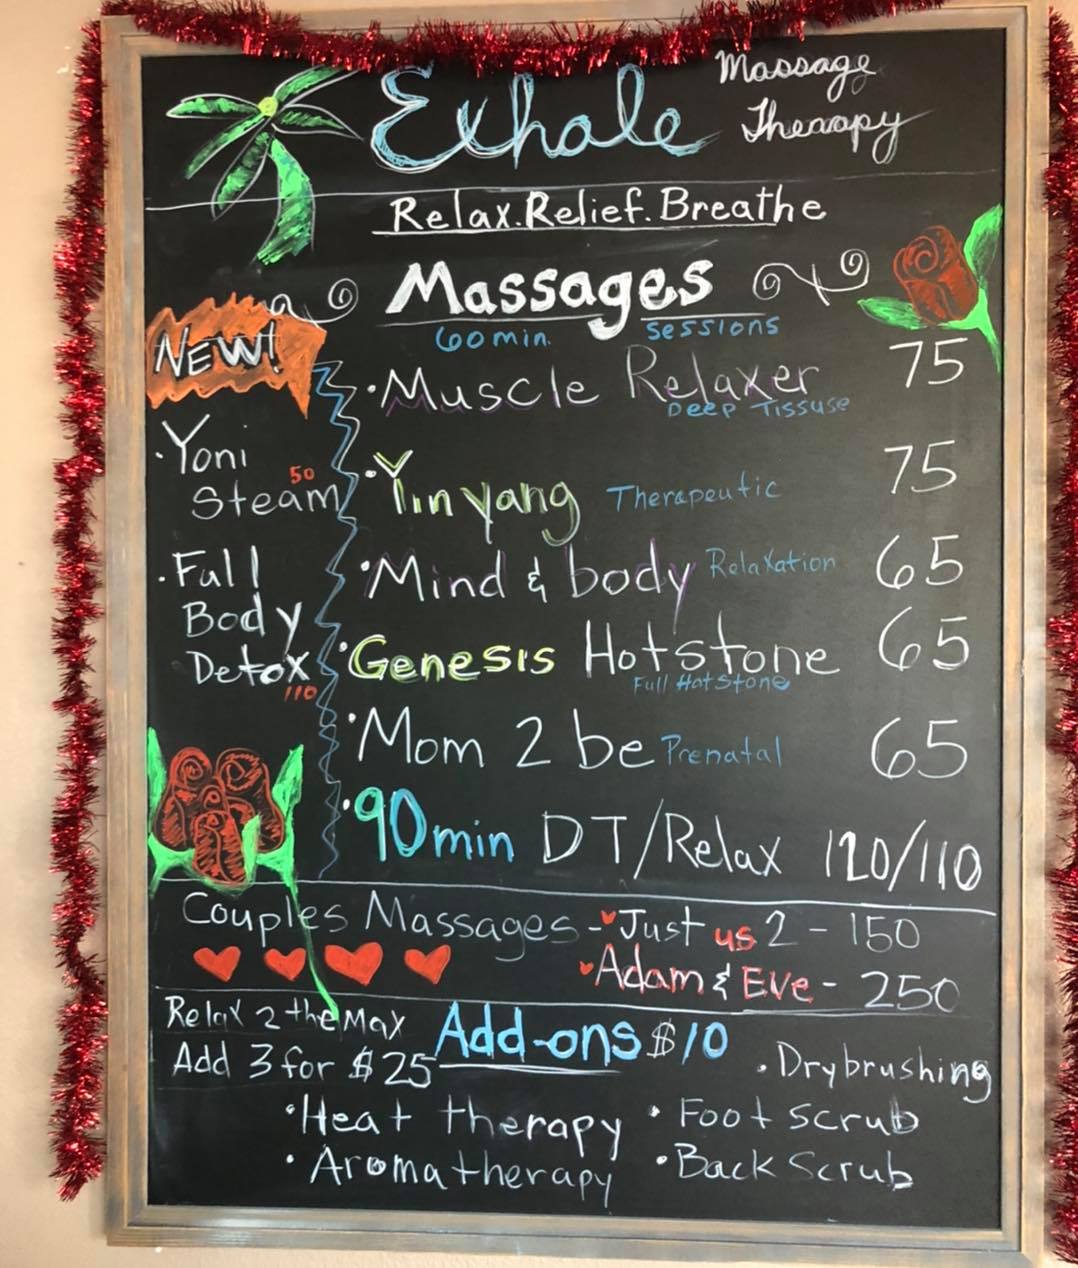 Exhale Massage
Therapy
Relax.Relief.Breathe
Massages
60 min. Sessions
NEW!
• Yoni
Steam 50
• Full
Body
Detox
110
• Muscle Relaxer 75
Deep Tissuse
• Yin yang Therapeutic 75
• Mind & body Relaxation 65
• Genesis Hotstone 65
Full Hot Stone
• Mom 2 be Prenatal 65
• 90min DT/Relax 120/110
Couples Massages - Just us 2 - 150
Adam & Eve - 250
Relax 2 the Max
Add 3 for $25
Add-ons $10
• Drybrushing
• Heat therapy • Foot scrub
• Aromatherapy • Back Scrub